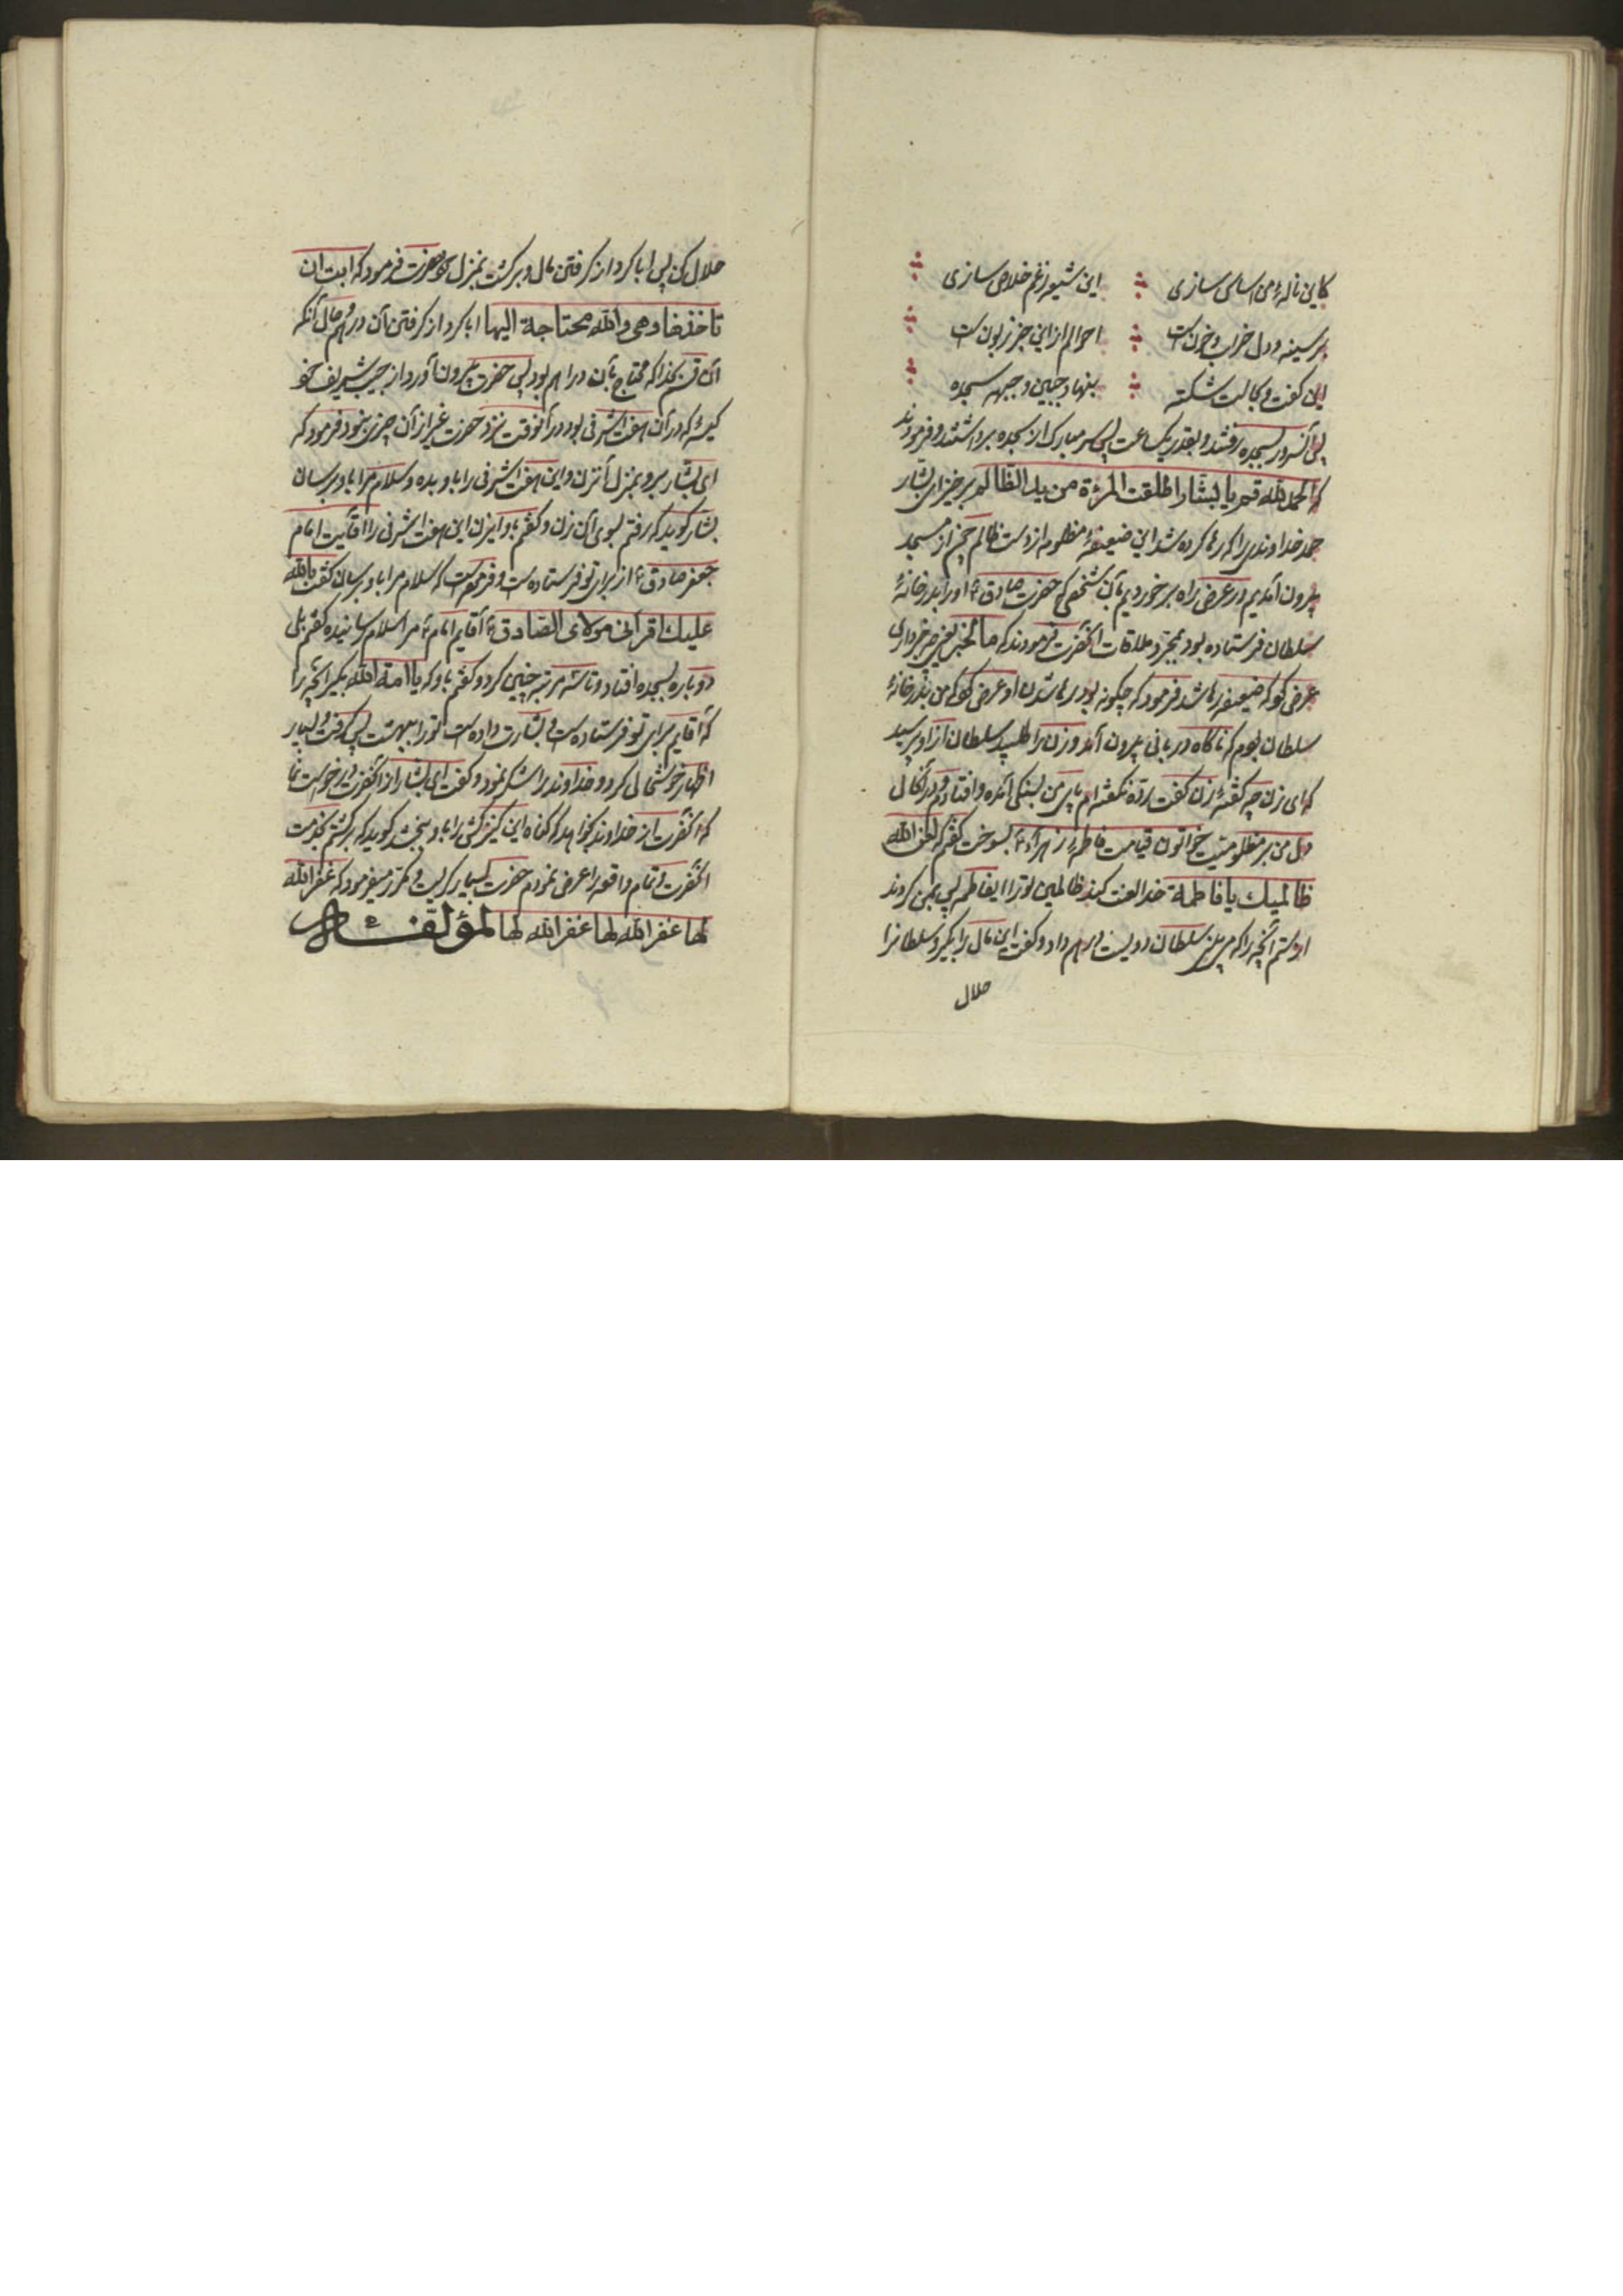 کاین ناله من اساس سازی این شیعه ز غم خلاص سازی
سینه و دل خراب و خون است احوالم از این خبر زبون است
این گفت و بحالت شکسته بنهاد جبین و جبهه سجده
پس آنسرور بسجده رفتند و بقدر یک ساعت پس سر مبارک از سجده برداشتند و فرمودند
که الحمدلله قم یا بشار اطلقت المرئة من ید الظالم برخیز ای بشار
حمد خداوندی را که رها کرده شد این ضعیفهٔ مظلومه از دست ظالم از مسجد
بیرون آمدیم در عرض راه برخوردیم بآن شخصی که حضرت صادق ع او را بدر خانهٔ
سلطان فرستاده بود بمجرد ملاقات آنحضرت فرمودند که ما الخبر یعنی چه خبر داری
عرض کرد که ضعیفه رها شد فرمود که چگونه بود رها شدن او عرض کرد که من بدر خانهٔ
سلطان بودم که ناگاه دربانی بیرون آمد و زن را طلبید سلطان از او پرسید
که ای زن چه گفتهٔ زن گفت نگفته‌ام پای من بسنگی آمده و افتادم و در آنحال
دل من بر مظلومیت خواتون قیامت فاطمه زهرا ع بسوخت گفتم که لعن الله
ظالمیک یا فاطمة خدا لعنت کند ظالمین تو را ای فاطمه پس بمن کردند
از ستم آنچه را که سلطان دویست درهم داد و گفت این مال را بگیر و سلطانرا
حلال
حلال کن پس ابا کرد از گرفتن مال و برگشت بمنزل حضرت فرمود که ابت ان
تاخذها و هی والله محتاجة الیها ابا کرد از گرفتن آن درهم و حال آنکه
آن قسم بخدا که محتاج بآن دراهم بود پس حضرت بیرون آورد از جیب شریف خو
کیسهٔ که در آن هفت اشرفی بود در آنوقت نزد حضرت غیر از آن چیزی نبود فرمود که
ای بشار برو بمنزل آنزن و این هفت اشرفی را باو بده و سلام مرا باو برسان
بشار گوید که رفتم بسوی آن زن و گفتم باو ایزن این هفت اشرفی را آقایت امام
جعفر صادق ع از برای تو فرستاده است و فرموده است که سلام مرا باو برسان گفت بالله
علیک اقرانی مولای الصادق ع آقایم امام ع مرا سلام رسانیده گفتم بلی
دوباره بسجده افتاد و تا سه مرتبه چنین کرد و گفتم باو که یا امة الله بگیر آنچه را
که آقایم برای تو فرستاده است و بشارت داده است تو را ببهشت پس گرفت و بسیار
اظهار خوشحالی کرد و خداوند را شکر نمود و گفت ای بشار از آنحضرت درخواست نما
که آنحضرت از خداوند بخواهد که گناه این کنیزکش را باو ببخشد گوید که برگشتم بخدمت
آنحضرت و تمام واقعه را عرض نمودم حضرت بسیار گریست و مکرر میفرمود که غفر الله
لها غفر الله لها غفر الله لها لمؤلفه